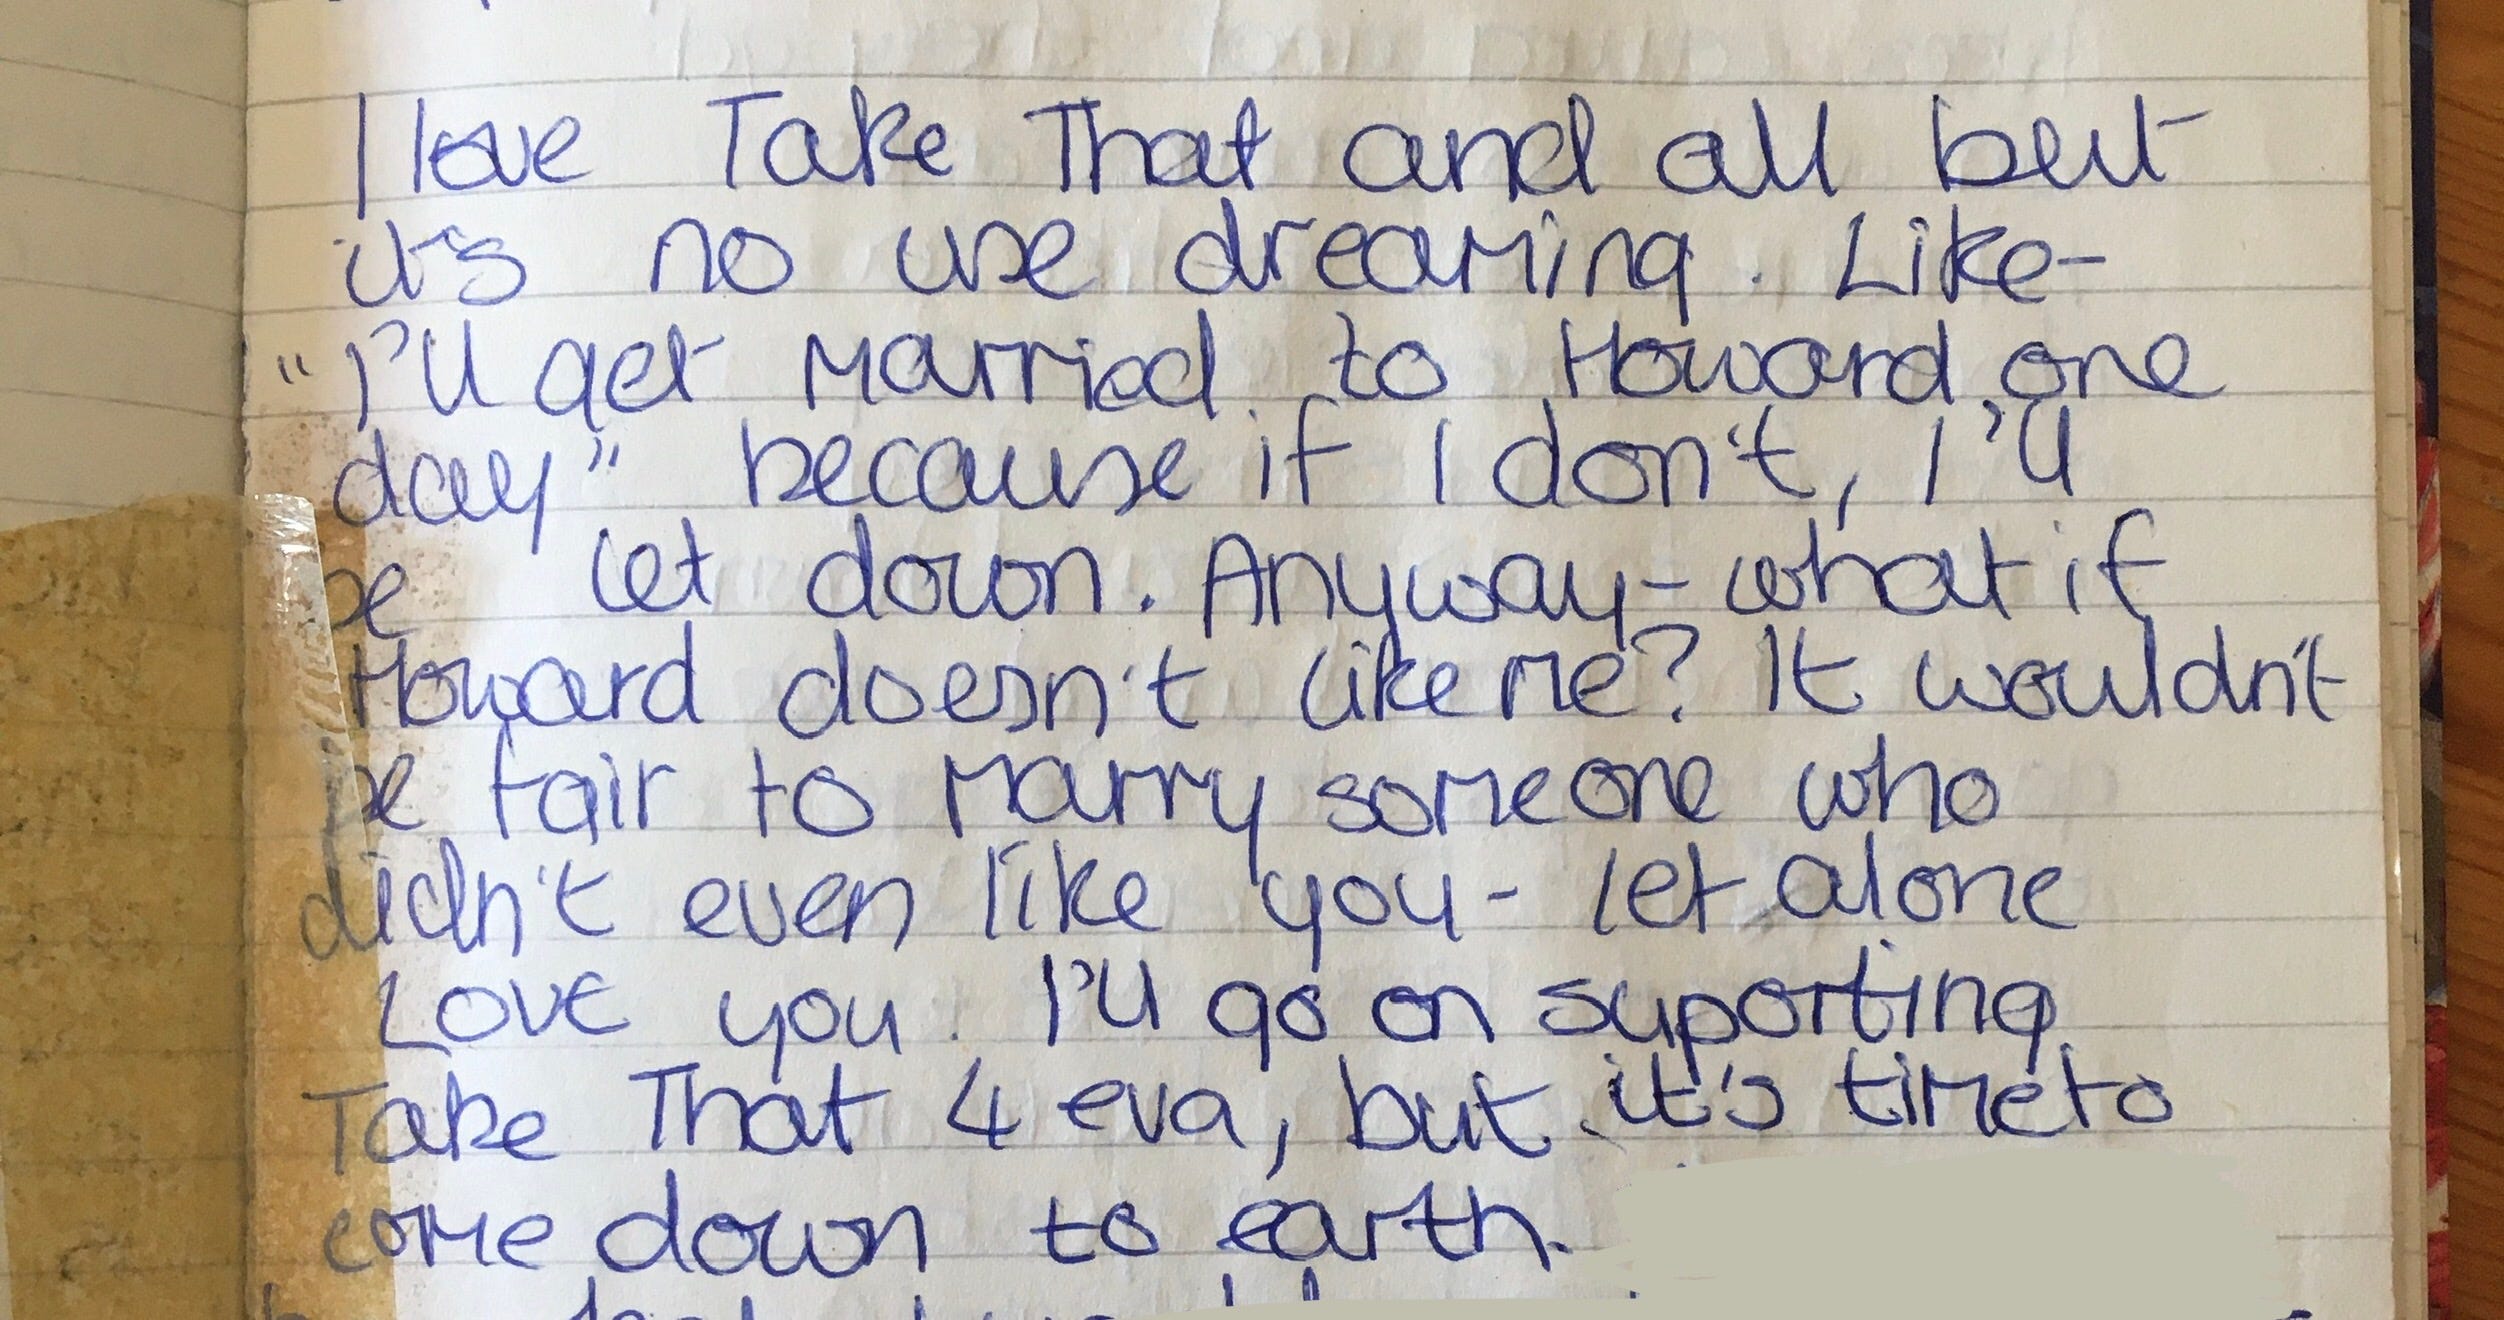 I love Take That and all but
it's no use dreaming. Like-
"I'll get married to Howard one
day" because if I don't, I'll
be let down. Anyway - what if
Howard doesn't like me? It wouldn't
be fair to marry someone who
didn't even like you - let alone
Love you. I'll go on suporting
Take That 4 eva, but it's time to
come down to earth.